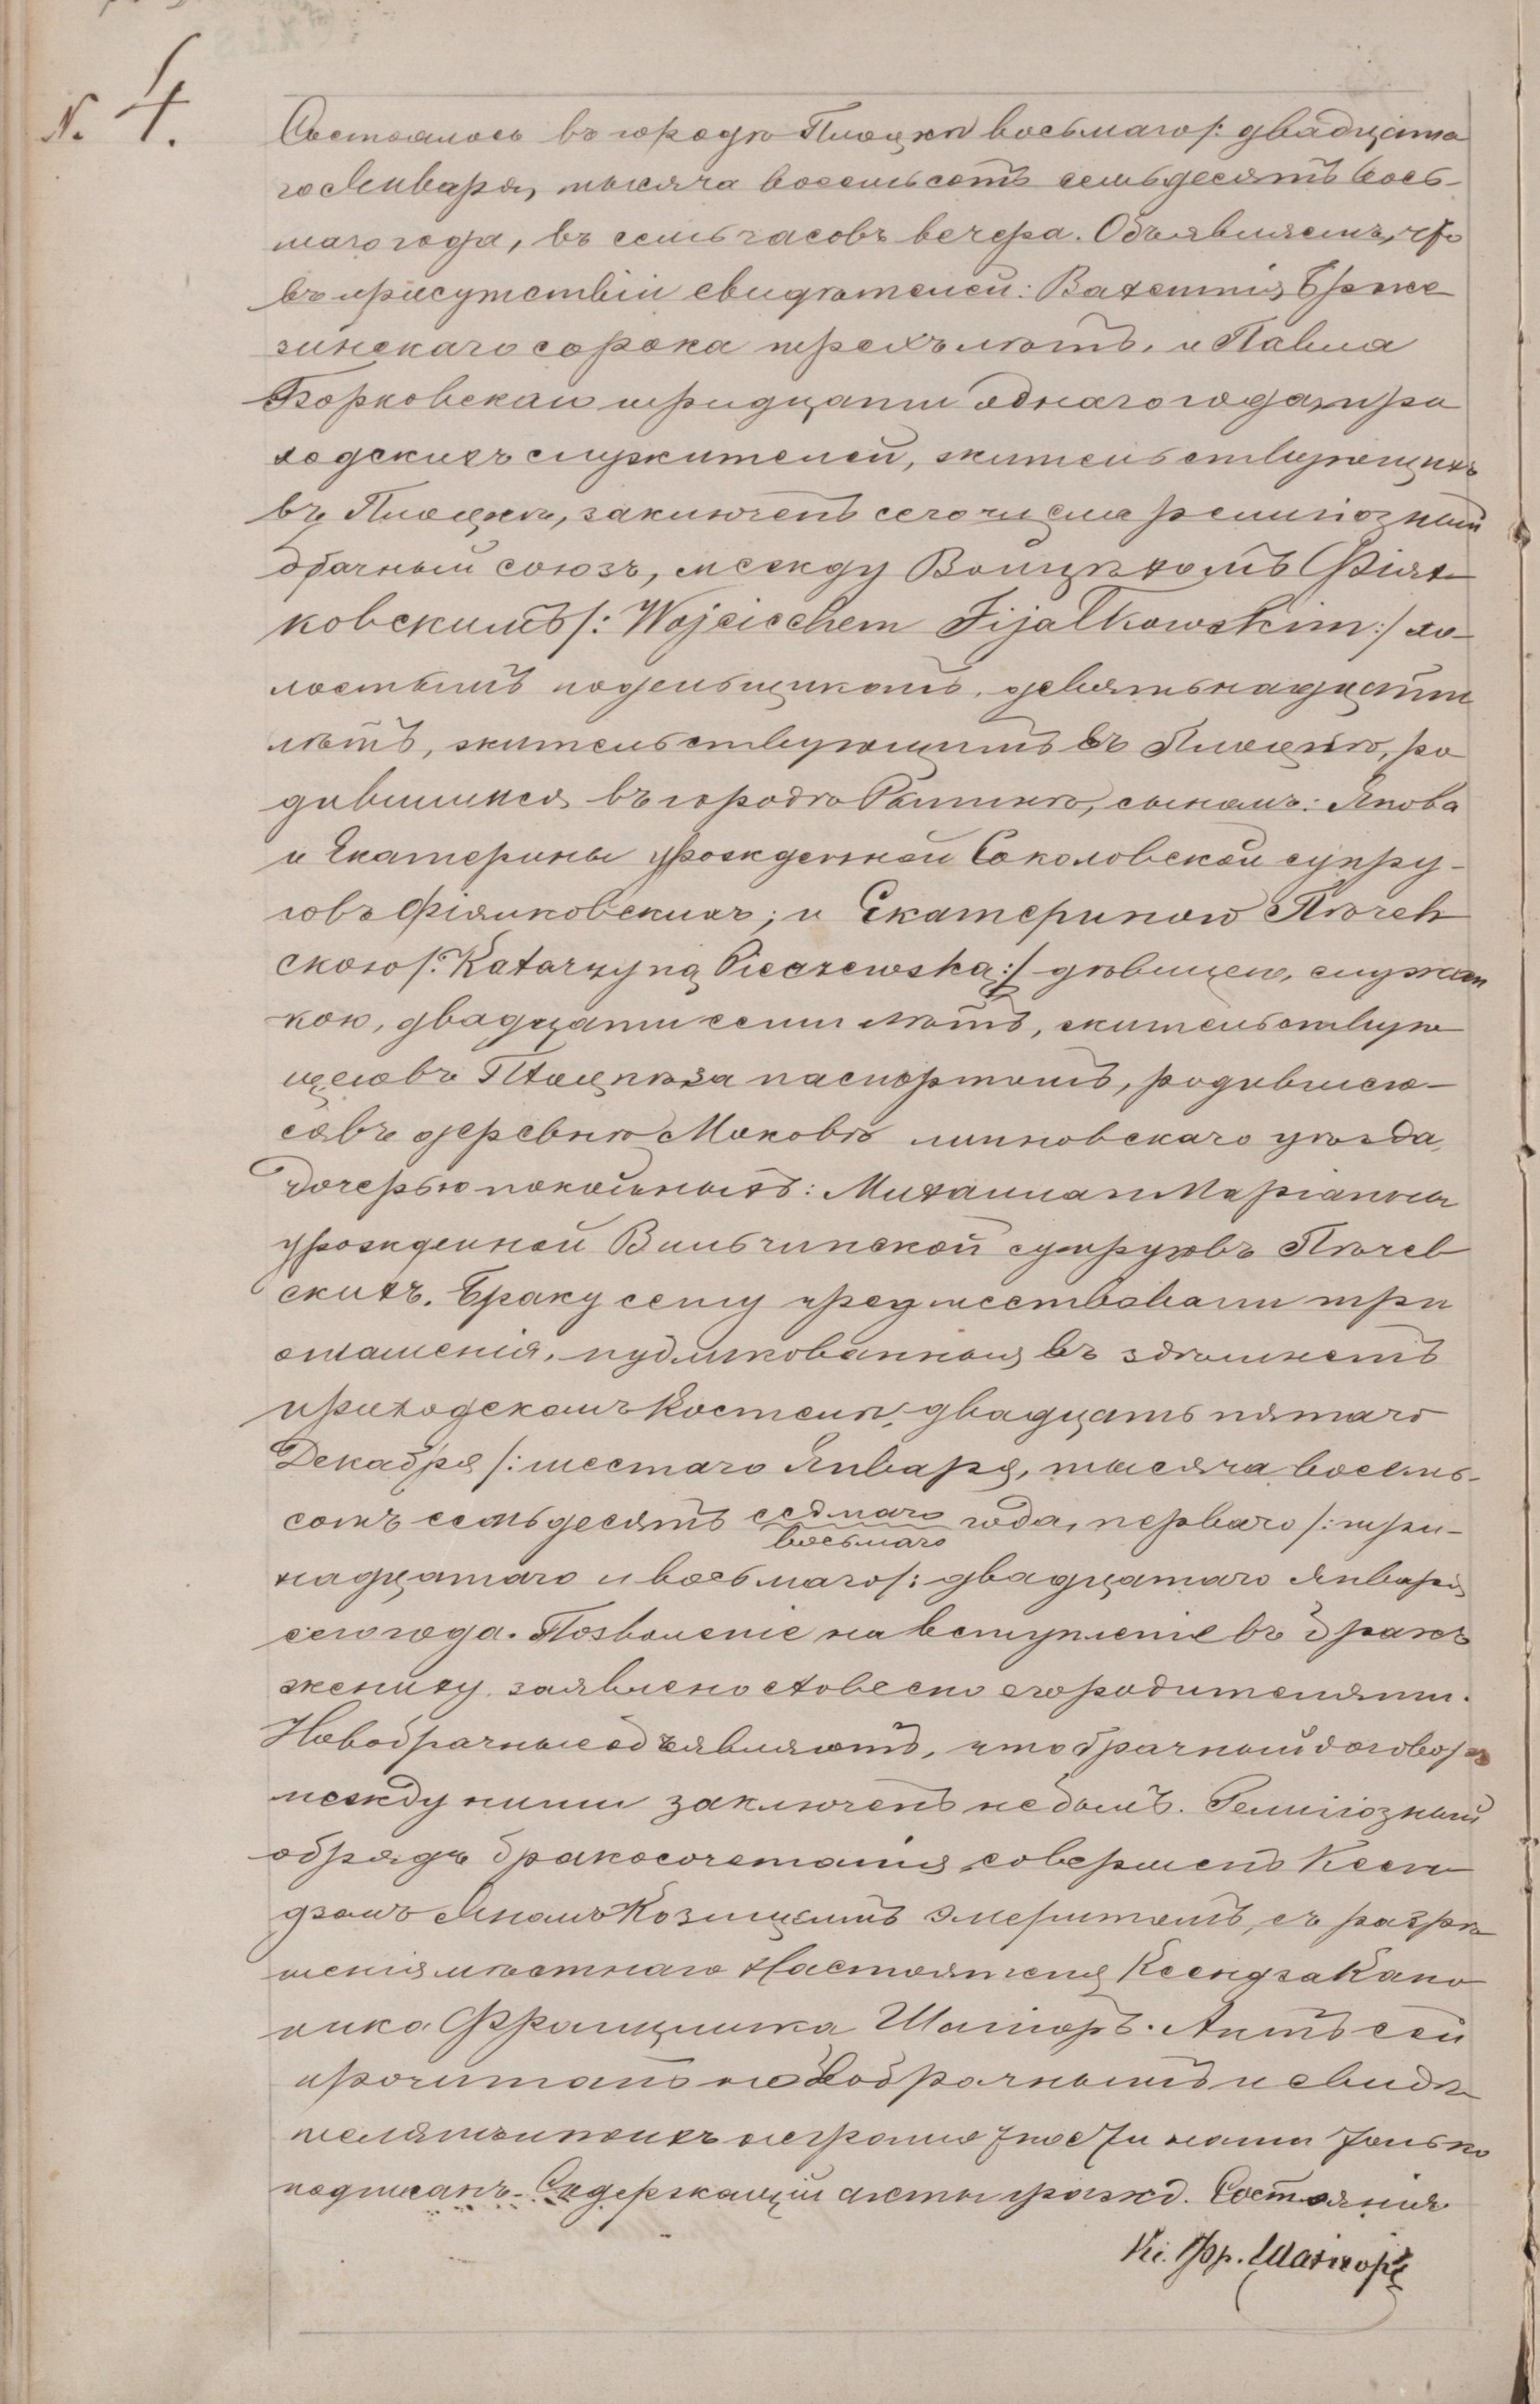 N. 4.
Состоялось въ городѣ Плоцкѣ восьмаго /: двадцата
го Января, тысяча восемьсотъ семьдесятъ вось-
маго года, въ семь часовъ вечера. Объявляемъ, что
въ присутствіи свидѣтелей: Валентія Брже
зинскаго сорока трехъ лѣтъ, и Павла
Борковскаго тридцати однаго года, при
ходскихъ служителей, жительствующихъ
въ Плоцкѣ, заключенъ сего числа религіозный
брачный союзъ, между Войцѣхомъ Фіял
ковскимъ /: Wojciechem Fijałkowskim :/ хо-
лостымъ поденьщикомъ, девятьнадцати
лѣтъ, жительствующимъ въ Плоцкѣ, ро
дившимся въ городѣ сыномъ: Якова
и Екатерины урожденной Соколовской супру-
говъ Фіялковскихъ; и Екатериною Пѣчев
скою /: Katarzyną Pieczewską :/ дѣвицею, служан
кою, двадцати семи лѣтъ, жительствую
щею въ Плоцкѣ за паспортомъ, родившею-
ся въ деревнѣ Маковѣ липновскаго уѣзда,
дочерью покойныхъ: Михаила и Маріанны
урожденной Вильчинской супруговъ Пѣчев
скихъ. Браку сему предшествовали три
оглашенія, публикованныя въ здѣшнемъ
приходскомъ Костелѣ, двадцать пятаго
Декабря /: шестаго Января, тысяча восемь-
сотъ семьдесятъ седмаго года, перваго /: три-
восьмаго
надцатаго и восьмаго /: двадцатаго Января
сего года. Позволеніе на вступленіе въ бракъ
жениху, заявлено словесно его родителями.
Новобрачные объявляютъ, что брачный договоръ
между ними заключенъ не былъ. Религіозный
обрядъ бракосочетанія совершенъ Ксен
дзомъ Яномъ Эмеритомъ, съ разрѣ
шенія мѣстнаго Настоятеля Ксендза Кано
ника Францишка Шаніоръ. Актъ сей
прочитанъ новобрачнымъ и свидѣ
телямъ и по ихъ неграмотности нами только
подписанъ. Содержащій акты гражд. Состоянія
Кс. Фр. Шаніоръ